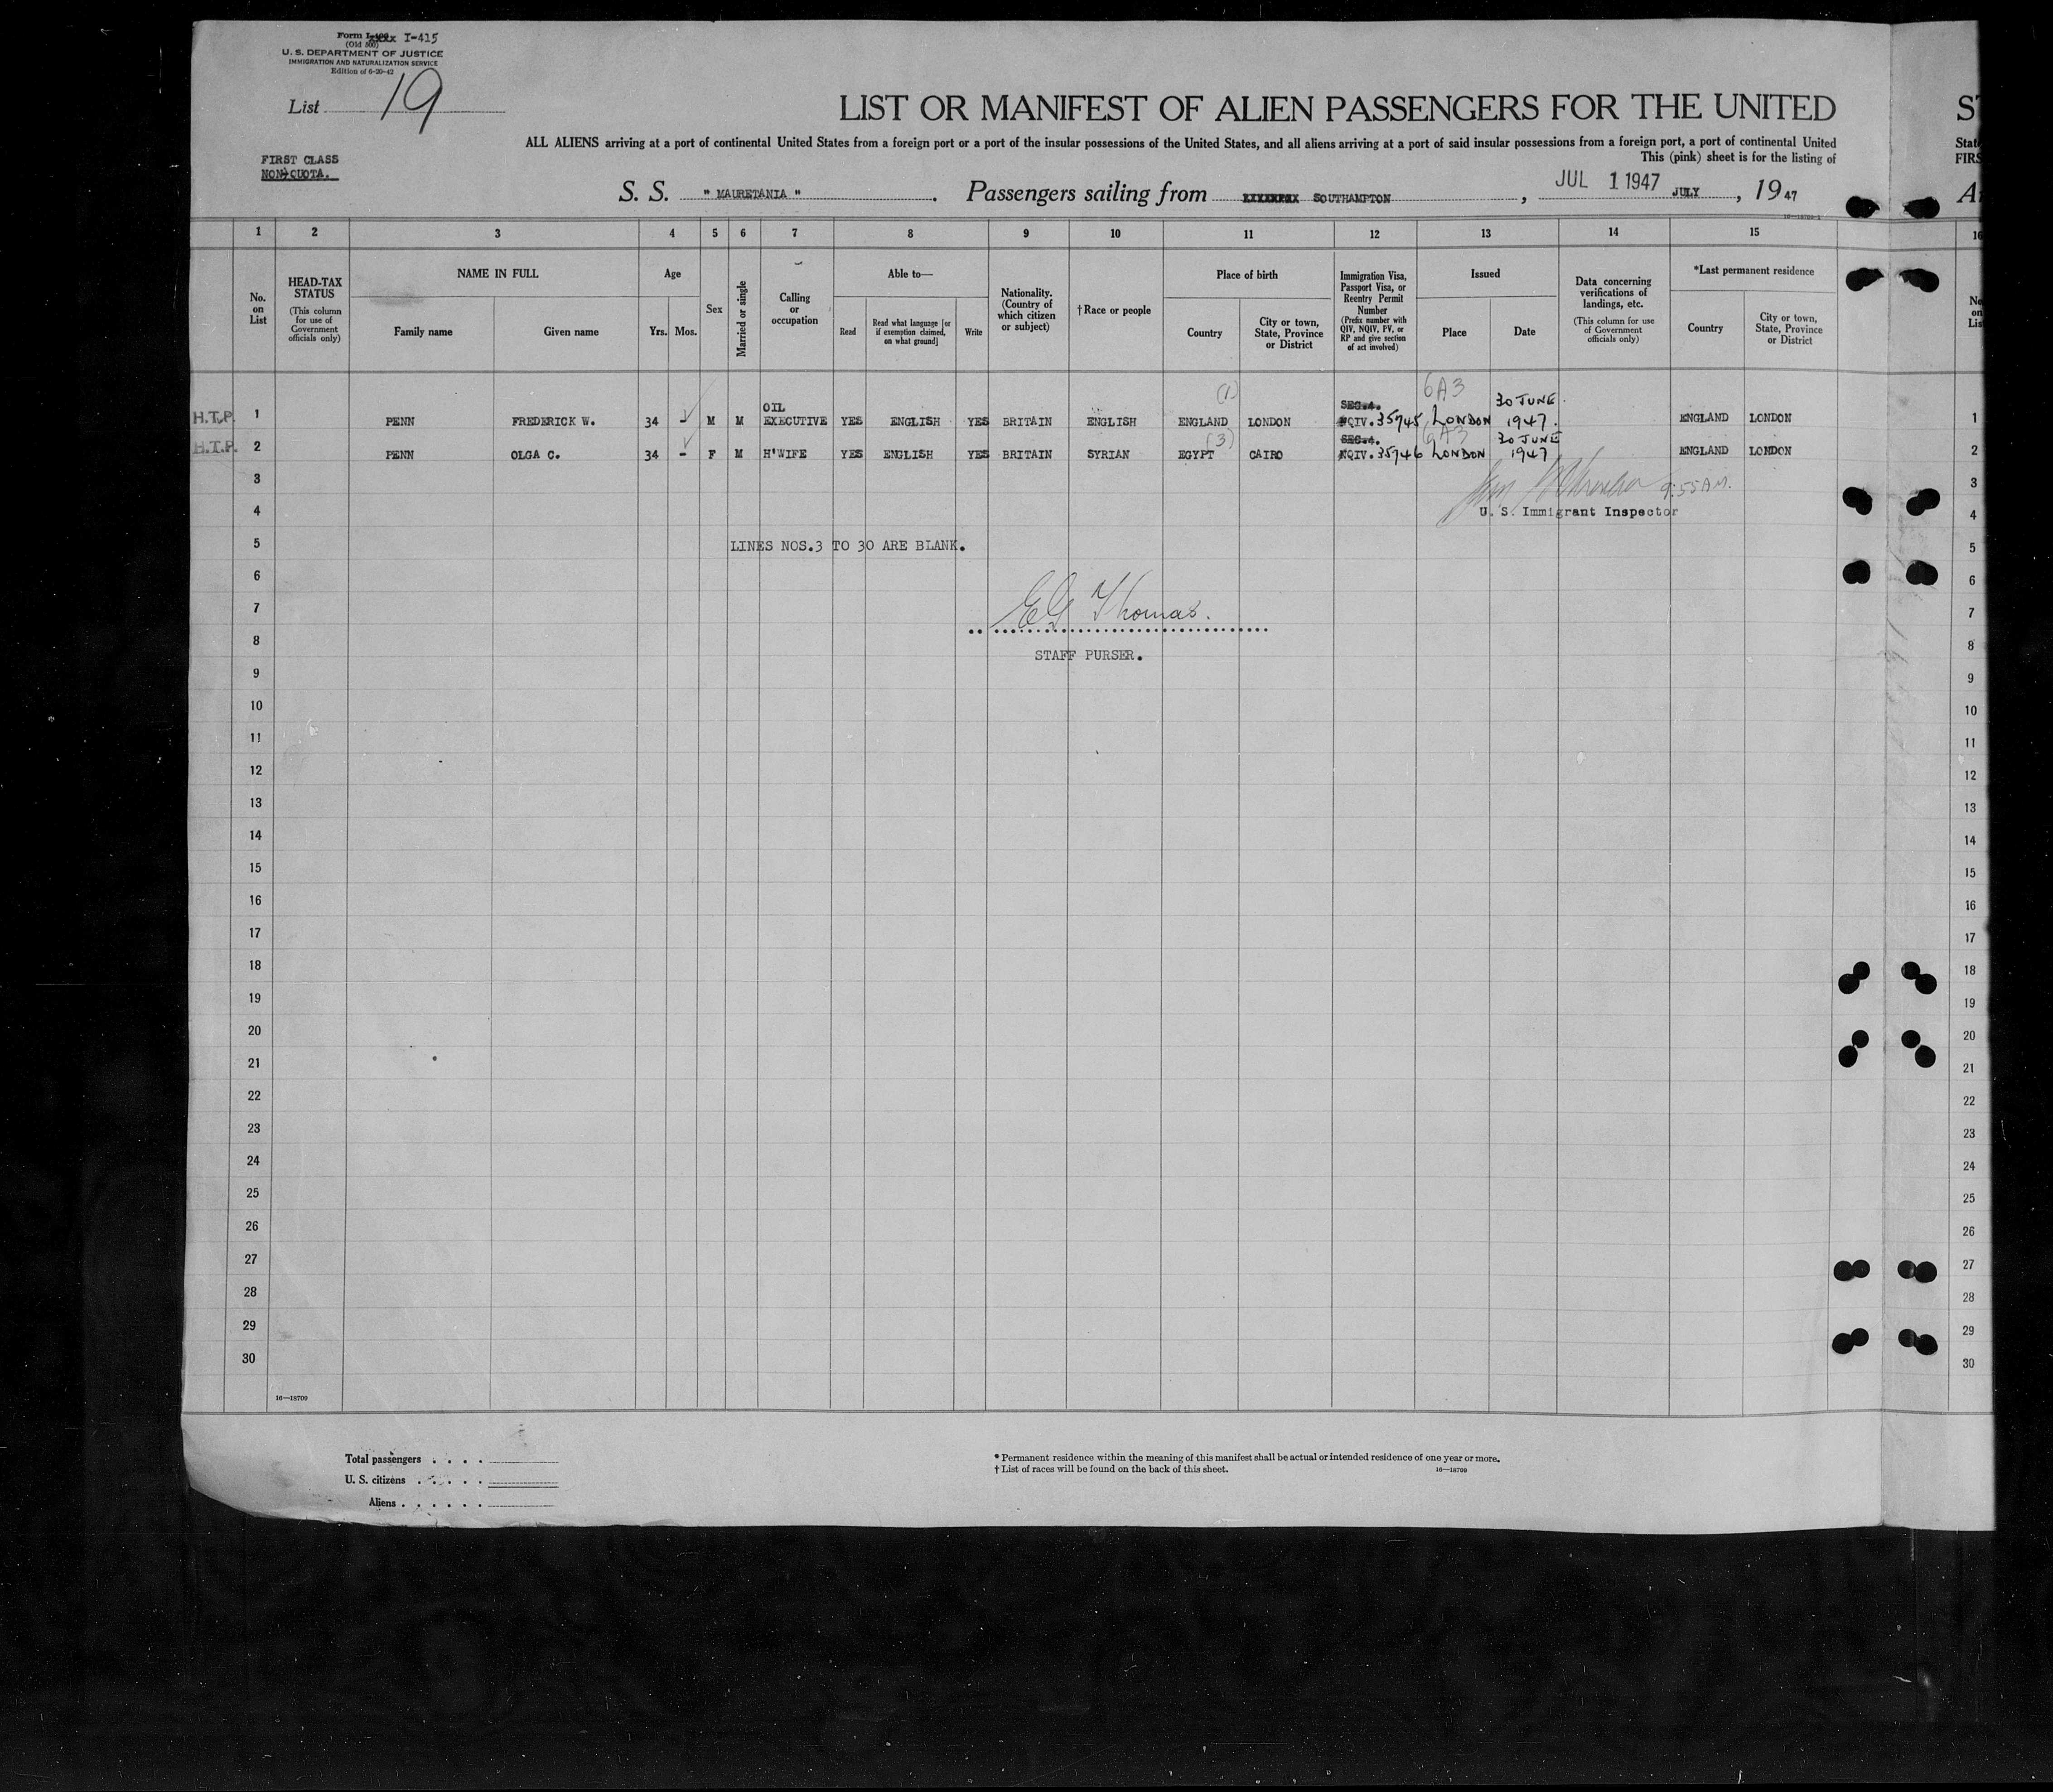 Form I-415
(Old 500)
U. S. DEPARTMENT OF JUSTICE
IMMIGRATION AND NATURALIZATION SERVICE
Edition of 6-20-42
List 19
LIST OR MANIFEST OF ALIEN PASSENGERS FOR THE UNITED
ALL ALIENS arriving at a port of continental United States from a foreign port or a port of the insular possessions of the United States, and all aliens arriving at a port of said insular possessions from a foreign port, a port of continental United
This (pink) sheet is for the listing of
FIRST CLASS
NON-QUOTA.
S. S. " MAURETANIA ". Passengers sailing from SOUTHAMPTON, JUL 1 1947 JULY, 19 47
1 2 3 4 5 6 7 8 9 10 11 12 13 14 15 16
No. on List
HEAD-TAX STATUS
(This column for use of Government officials only)
NAME IN FULL
Family name Given name
Age
Yrs. Mos.
Sex
Married or single
Calling or occupation
Able to—
Read Read what language [or if exemption claimed, on what ground] Write
Nationality. (Country of which citizen or subject)
†Race or people
Place of birth
Country City or town, State, Province or District
Immigration Visa, Passport Visa, or Reentry Permit Number
(Prefix number with QIV, NQIV, PV, or RP and give section of act involved)
Issued
Place Date
Data concerning verifications of landings, etc.
(This column for use of Government officials only)
*Last permanent residence
Country City or town, State, Province or District
H.T.P. 1 PENN FREDERICK W. 34 - M M OIL EXECUTIVE YES ENGLISH YES BRITAIN ENGLISH (1) ENGLAND LONDON SEC.4. NQIV. 35745 6A3 LONDON 30 JUNE 1947. ENGLAND LONDON 1
H.T.P. 2 PENN OLGA C. 34 - F M H'WIFE YES ENGLISH YES BRITAIN SYRIAN (3) EGYPT CAIRO SEC.4. NQIV. 35746 6A3 LONDON 30 JUNE 1947 ENGLAND LONDON 2
3 9:55 A.M. 3
4 U. S. Immigrant Inspector 4
5 LINES NOS.3 TO 30 ARE BLANK. 5
6 6
7 EG Thomas. 7
8 STAFF PURSER. 8
9 9
10 10
11 11
12 12
13 13
14 14
15 15
16 16
17 17
18 18
19 19
20 20
21 21
22 22
23 23
24 24
25 25
26 26
27 27
28 28
29 29
30 30
16—18709
Total passengers . . . .
U. S. citizens . . . . .
Aliens . . . . . .
* Permanent residence within the meaning of this manifest shall be actual or intended residence of one year or more.
† List of races will be found on the back of this sheet. 16—18709